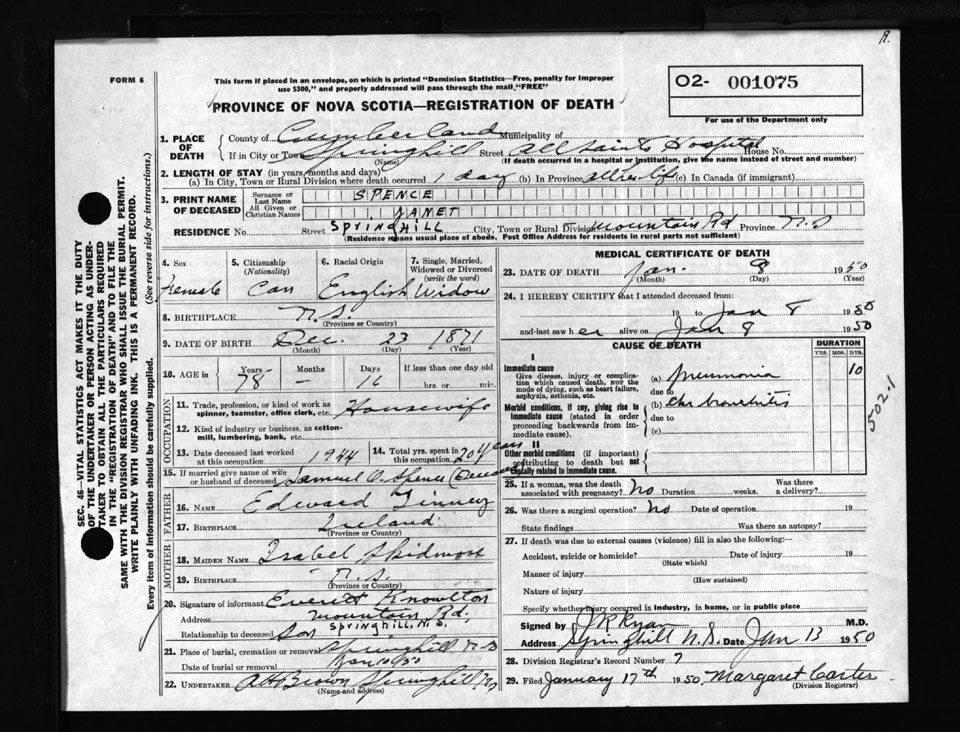 R.
FORM 6
This form if placed in an envelope, on which is printed "Dominion Statistics—Free, penalty for improper
use $300," and properly addressed will pass through the mail "FREE"
PROVINCE OF NOVA SCOTIA—REGISTRATION OF DEATH
O2- 001075
For use of the Department only
SEC. 46—VITAL STATISTICS ACT MAKES IT THE DUTY
OF THE UNDERTAKER OR PERSON ACTING AS UNDER-
TAKER TO OBTAIN ALL THE PARTICULARS REQUIRED
IN THE "REGISTRATION OF DEATH" AND TO FILE THE
SAME WITH THE DIVISION REGISTRAR WHO SHALL ISSUE THE BURIAL PERMIT.
WRITE PLAINLY WITH UNFADING INK. THIS IS A PERMANENT RECORD.
Every item of information should be carefully supplied. (See reverse side for instructions.)
1. PLACE OF DEATH
County of Cumberland Municipality of
If in City or Town Springhill Street All Saints Hospital House No.
(Name) (If death occurred in a hospital or institution, give the name instead of street and number)
2. LENGTH OF STAY (in years, months and days)
(a) In City, Town or Rural Division where death occurred 1 day (b) In Province all her life (c) In Canada (if immigrant)
3. PRINT NAME OF DECEASED
Surname or Last Name SPENCE
All Given or Christian Names JANET
RESIDENCE No. Street SPRINGHILL City, Town or Rural Division Mountain Rd Province N.S
(Residence means usual place of abode. Post Office Address for residents in rural parts not sufficient)
4. Sex Female
5. Citizenship (Nationality) Can
6. Racial Origin English
7. Single, Married, Widowed or Divorced (write the word) Widow
8. BIRTHPLACE N.S.
(Province or Country)
9. DATE OF BIRTH Dec. 23 1871
(Month) (Day) (Year)
10. AGE in Years 78 Months – Days 16 If less than one day old hrs. or min.
OCCUPATION
11. Trade, profession, or kind of work as spinner, teamster, office clerk, etc. Housewife
12. Kind of industry or business, as cotton-mill, lumbering, bank, etc.
13. Date deceased last worked at this occupation 1944
14. Total yrs. spent in this occupation 20 years
15. If married give name of wife or husband of deceased Samuel O. Spence
FATHER
16. Name Edward
17. Birthplace Ireland
(Province or Country)
MOTHER
18. Maiden Name Isabel Skidmore
19. Birthplace N.S.
(Province or Country)
20. Signature of informant Everett Knowlton
Address Mountain Rd, Springhill. N.S.
Relationship to deceased Son
21. Place of burial, cremation or removal Springhill N-S
Date of burial or removal Jan 10/50
22. Undertaker Brown Springhill NS
(Name and address)
MEDICAL CERTIFICATE OF DEATH
23. DATE OF DEATH Jan. 8 1950
(Month) (Day) (Year)
24. I HEREBY CERTIFY that I attended deceased from:
19 to Jan 8 1950
and last saw her alive on Jan 8 1950
CAUSE OF DEATH
DURATION
YRS. MOS. DYS.
I
Immediate cause
Give disease, injury or complication which caused death, NOT the mode of dying, such as heart failure, asphyxia, asthenia, etc.
(a) Pneumonia 10
due to
Morbid conditions, if any, giving rise to immediate cause (stated in order proceeding backwards from immediate cause).
(b) Chr bronchitis
due to
(c)
II
Other morbid conditions (if important) contributing to death but not causally related to immediate cause.
502.1
25. If a woman, was the death associated with pregnancy? No Duration weeks. Was there a delivery?
26. Was there a surgical operation? No Date of operation 19
State findings Was there an autopsy?
27. If death was due to external causes (violence) fill in also the following:—
Accident, suicide or homicide? Date of injury 19
(State which)
Manner of injury
(How sustained)
Nature of injury
Specify whether injury occurred in industry, in home, or in public place
Signed by J R Ryan M.D.
Address Springhill N.S. Date Jan 13 1950
28. Division Registrar's Record Number 7
29. Filed January 17th 1950. Margaret Carter
(Division Registrar)